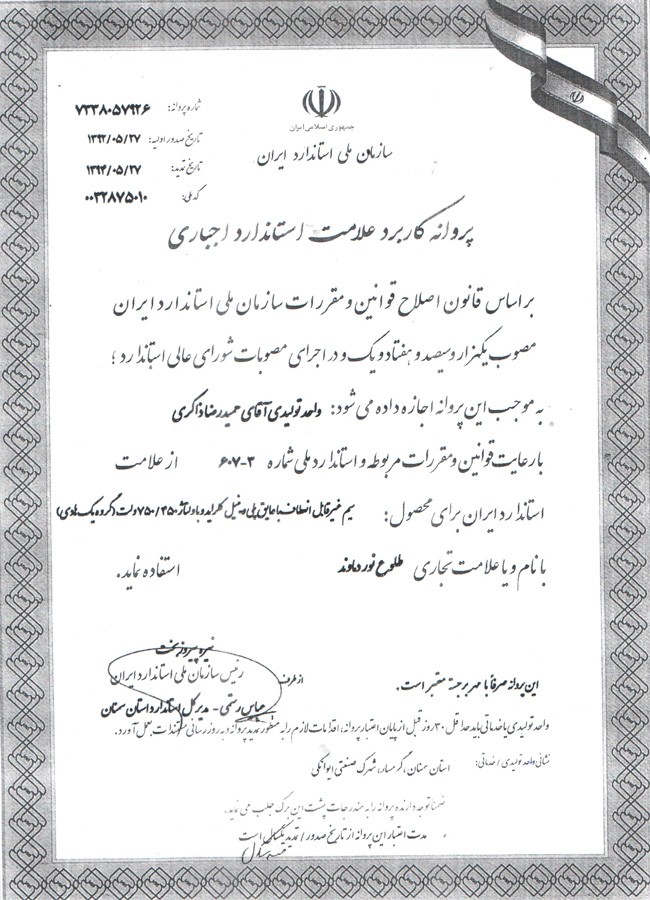 جمهوری اسلامی ایران
سازمان ملی استاندارد ایران
شماره پروانه: ۷۳۳۸۰۵۷۹۲۶
تاریخ صدور اولیه: ۱۳۹۲/۰۵/۲۷
تاریخ تمدید: ۱۳۹۴/۰۵/۲۷
کد ملی: ۰۰۳۲۸۷۵۰۱۰
پروانه کاربرد علامت استاندارد اجباری
بر اساس قانون اصلاح قوانین و مقررات سازمان ملی استاندارد ایران
مصوب یکهزار و سیصد و هفتاد و یک و در اجرای مصوبات شورای عالی استاندارد ؛
به موجب این پروانه اجازه داده می شود: واحد تولیدی آقای حمیدرضا ذاکری
با رعایت قوانین و مقررات مربوطه و استاندارد ملی شماره ۳-۶۰۷ از علامت
استاندارد ایران برای محصول: سیم غیرقابل انعطاف با عایق پلی وینیل کلراید و با ولتاژ ۷۵۰/۴۵۰ ولت (گروه یک هادی)
با نام و یا علامت تجاری طلوع نور دماوند استفاده نماید.
نیره پیروزبخت
رئیس سازمان ملی استاندارد ایران
از طرف
عباس رستمی - مدیر کل استاندارد استان سمنان
این پروانه صرفا با مهر برجسته معتبر است.
واحد تولیدی یا خدماتی باید حداقل ۳۰ روز قبل از پایان اعتبار پروانه، اقدامات لازم را به منظور تمدید پروانه و به روز رسانی مستندات بعمل آورد.
نشانی واحد تولیدی / خدماتی: استان سمنان، گرمسار، شهرک صنعتی ایوانکی
ضمنا توجه دارنده پروانه را به مندرجات پشت این برگ جلب می نماید.
مدت اعتبار این پروانه از تاریخ صدور / تمدید یکسال است